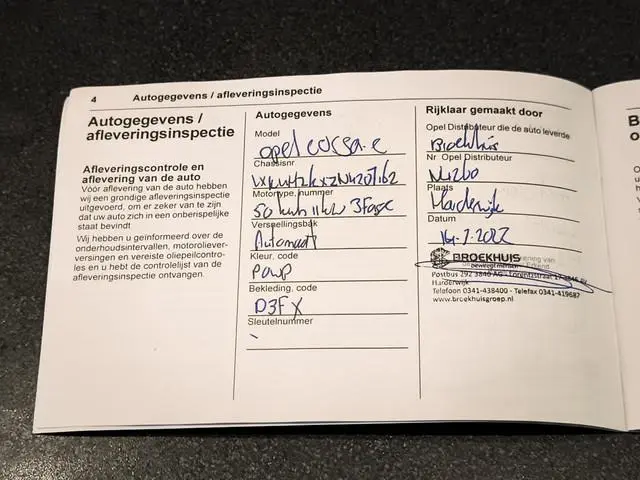 4 Autogegevens / afleveringsinspectie
Autogegevens /
afleveringsinspectie
Afleveringscontrole en
aflevering van de auto
Vóór aflevering van de auto hebben
wij een grondige afleveringsinspectie
uitgevoerd, om er zeker van te zijn
dat uw auto zich in een onberispelijke
staat bevindt.
Wij hebben u geïnformeerd over de
onderhoudsintervallen, motoroliever-
versingen en vereiste oliepeilcontro-
les en u hebt de controlelijst van de
afleveringsinspectie ontvangen.
Autogegevens
Model
opel corsa-e
Chassisnr
Motortype, nummer
50 kwh 11kw 3Fase
Versnellingsbak
Automaat
Kleur, code
Bekleding, code
D3FX
Sleutelnummer
Rijklaar gemaakt door
Opel Distributeur die de auto leverde
Broekhuis
Nr Opel Distributeur
Plaats
Harderwijk
Datum
14-7-2022
BROEKHUIS
beweegt mensen
Postbus 292 3840 AG
Harderwijk
Telefoon 0341-438400 - Telefax 0341-419687
www.broekhuisgroep.nl